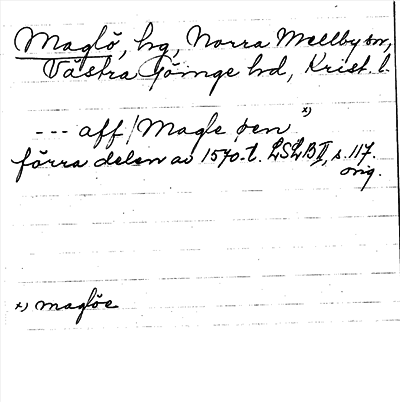 Maglö, hg, Norra Mellby sn,
Västra Göinge hd, Krist. l.
--- aff / Magle øen x)
förra delen av 1570-t. LSLB II, s. 117.
orig.
x) magløe